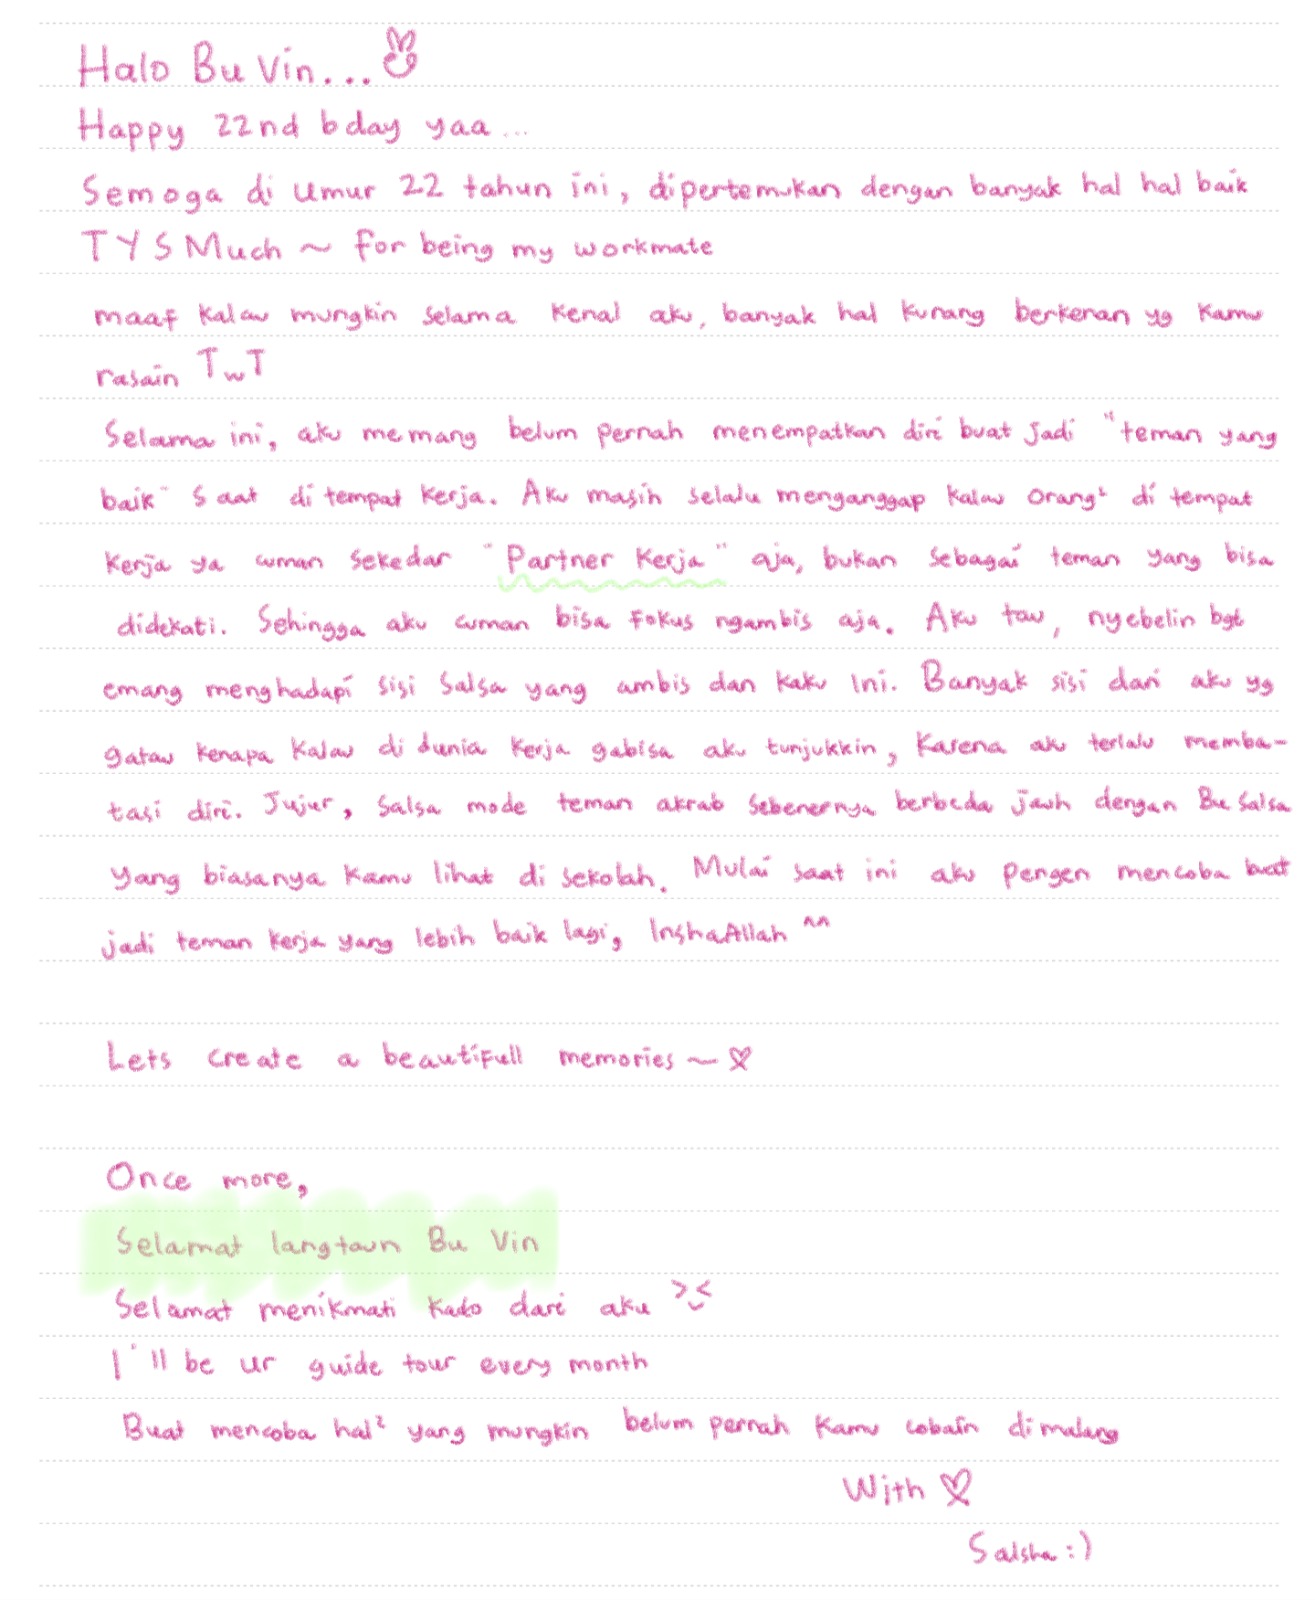 Halo Bu Vin...
Happy 22nd bday yaa...
Semoga di umur 22 tahun ini, dipertemukan dengan banyak hal hal baik
TYSMuch ~ for being my workmate
maaf kalau mungkin selama kenal aku, banyak hal kurang berkenan yg kamu
rasain TwT
Selama ini, aku memang belum pernah menempatkan diri buat jadi "teman yang
baik" saat di tempat kerja. Aku masih selalu menganggap kalau orang² di tempat
kerja ya cuman sekedar "Partner Kerja" aja, bukan sebagai teman yang bisa
didekati. Sehingga aku cuman bisa fokus ngambis aja. Aku tau, nyebelin bgt
emang menghadapi sisi Salsa yang ambis dan kaku ini. Banyak sisi dari aku yg
gatau kenapa kalau di dunia kerja gabisa aku tunjukkin, karena aku terlalu memba-
tasi diri. Jujur, Salsa mode teman akrab sebenernya berbeda jauh dengan Bu Salsa
yang biasanya kamu lihat di sekolah. Mulai saat ini aku pengen mencoba buat
jadi teman kerja yang lebih baik lagi, InshaAllah ^^
Lets create a beautifull memories ~ ♡
Once more,
Selamat langtaun Bu Vin
Selamat menikmati kado dari aku >‿<
I'll be ur guide tour every month
Buat mencoba hal² yang mungkin belum pernah kamu cobain di malang
With ♡
Salsha :)